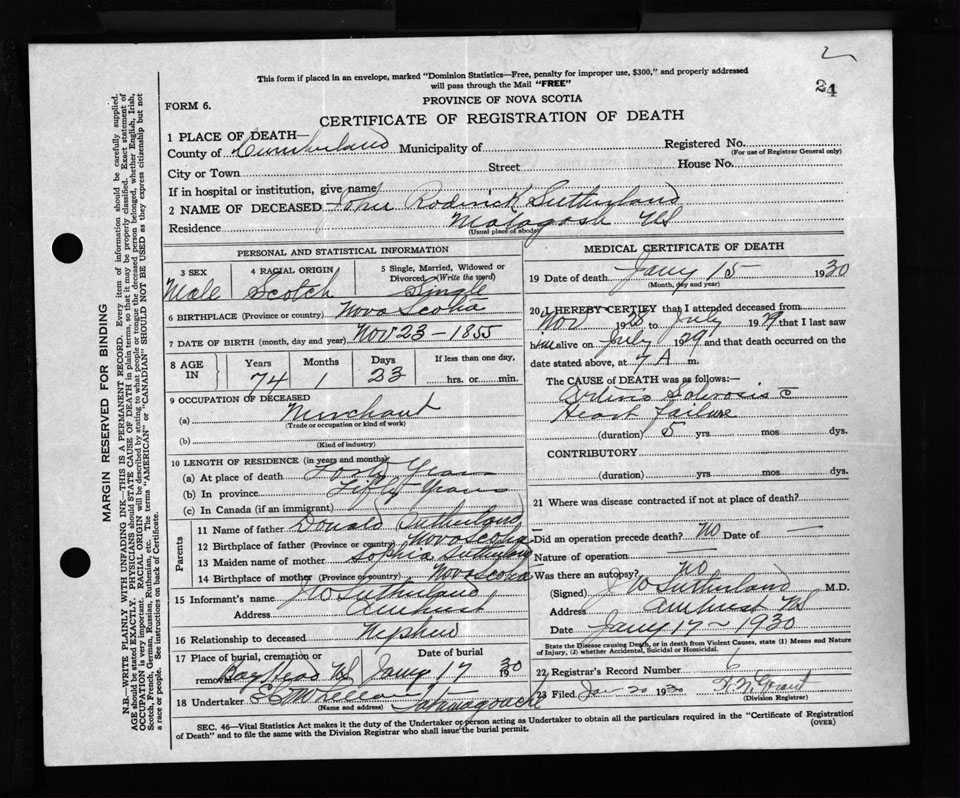 2
24
This form if placed in an envelope, marked "Dominion Statistics—Free, penalty for improper use, $300," and properly addressed
will pass through the Mail "FREE"
FORM 6.
PROVINCE OF NOVA SCOTIA
CERTIFICATE OF REGISTRATION OF DEATH
1 PLACE OF DEATH—
County of Cumberland Municipality of Registered No.
(For use of Registrar General only)
City or Town Street House No.
If in hospital or institution, give name
2 NAME OF DECEASED John Roderick Sutherland
Residence Malagash NS
(Usual place of abode)
PERSONAL AND STATISTICAL INFORMATION
3 SEX 4 RACIAL ORIGIN 5 Single, Married, Widowed or
Divorced (Write the word)
Male Scotch Single
6 BIRTHPLACE (Province or country) Nova Scotia
7 DATE OF BIRTH (month, day and year) Nov 23 - 1855
8 AGE IN Years Months Days If less than one day,
74 1 23 hrs. or min.
9 OCCUPATION OF DECEASED
(a) Merchant
(Trade or occupation or kind of work)
(b)
(Kind of industry)
10 LENGTH OF RESIDENCE (in years and months)
(a) At place of death Forty Years
(b) In province Fifty Years
(c) In Canada (if an immigrant)
Parents
11 Name of father Donald Sutherland
12 Birthplace of father (Province or country) Nova Scotia
13 Maiden name of mother Sophia Sutherland
14 Birthplace of mother (Province or country) Nova Scotia
15 Informant's name J W Sutherland
Address Amherst
16 Relationship to deceased Nephew
17 Place of burial, cremation or removal Date of burial
Bay Head NS Jany 17 1930
18 Undertaker Tatamagouche
(Name and address)
MEDICAL CERTIFICATE OF DEATH
19 Date of death Jany 15 1930
(Month, day and year)
20 I HEREBY CERTIFY that I attended deceased from
Nov 1928 to July 1929 that I last saw
him alive on July 1929 and that death occurred on the
date stated above, at 7 A m.
The CAUSE OF DEATH was as follows:—
Arterio Sclerosis c̄
Heart Failure
(duration) 5 yrs. mos. dys.
CONTRIBUTORY
(duration) yrs. mos. dys.
21 Where was disease contracted if not at place of death?
Did an operation precede death? No Date of —
Nature of operation —
Was there an autopsy? No
(Signed) J W Sutherland M.D.
Address Amherst NS
Date Jany 17 - 1930
State the Disease causing Death, or in death from Violent Causes, state (1) Means and Nature
of Injury, (2) whether Accidental, Suicidal or Homicidal.
22 Registrar's Record Number 6
23 Filed Jan 20 1930 Grant
(Division Registrar)
SEC. 46—Vital Statistics Act makes it the duty of the Undertaker or person acting as Undertaker to obtain all the particulars required in the "Certificate of Registration
of Death" and to file the same with the Division Registrar who shall issue the burial permit. (OVER)
MARGIN RESERVED FOR BINDING
N.B.—WRITE PLAINLY WITH UNFADING INK—THIS IS A PERMANENT RECORD. Every item of information should be carefully supplied.
AGE should be stated EXACTLY. PHYSICIANS should STATE CAUSE OF DEATH in plain terms, so that it may be properly classified. Exact statement of
OCCUPATION is very important. RACIAL ORIGIN will be described by stating to what people or tongue the deceased person belonged, whether English, Irish,
Scotch, French, German, Russian, Ruthenian, etc. The terms "AMERICAN" or "CANADIAN" SHOULD NOT BE USED as they express citizenship but not
a race or people. See instructions on back of Certificate.